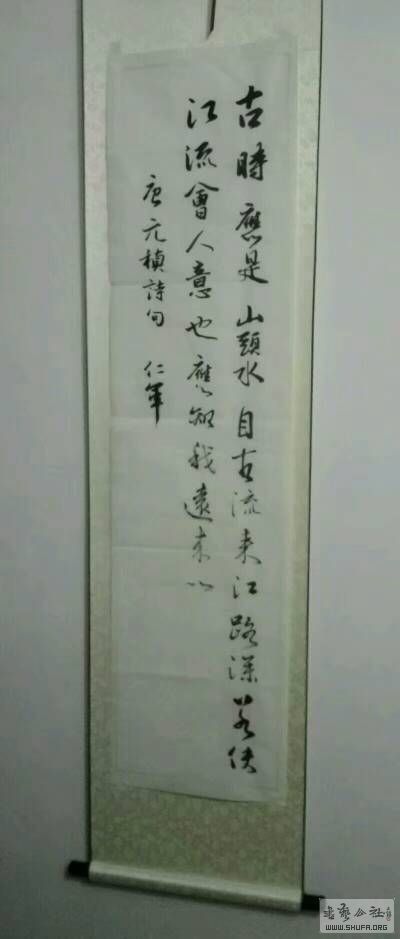 古時應是山頭水自古流來江路深若使
江流會人意也應知我遠來心
唐元楨詩句 仁軍
书艺公社
WWW.SHUFA.ORG